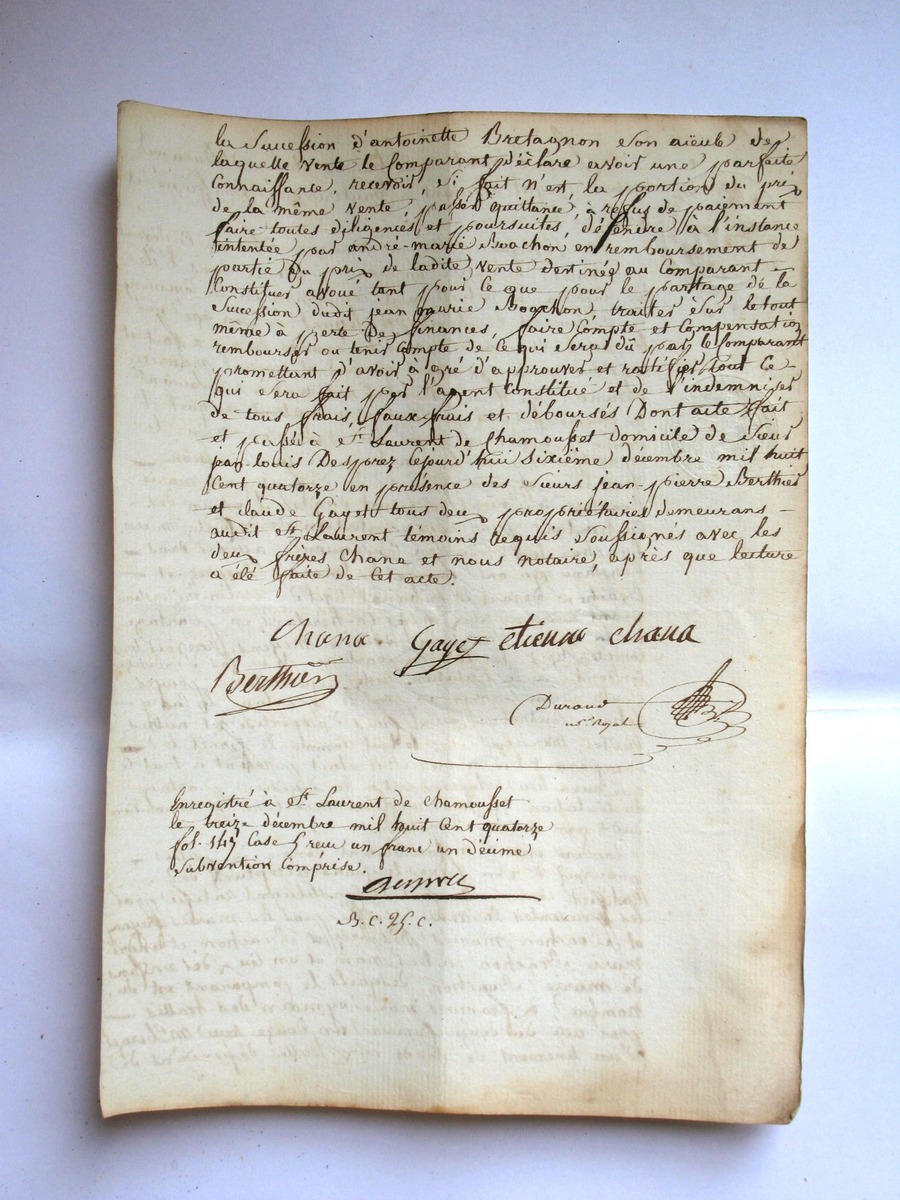 la Succession d'antoinette Bretagnon Son aïeule de
laquelle vente le Comparant déclare avoir une parfaite
Connaissance, recevoir, Si fait n'est, la portion du prix
de la même vente, passer quittance, à refus de paiement
faire toutes diligences et poursuites, défendre à l'instance
intentée par andré-marie en remboursement de
partie du prix de ladite vente destinée au Comparant
Constituer avoué tant pour ce que pour le partage de la
Succession dudit jean marie traiter Sur le tout
même à perte de finances, faire Compte et Compensation
rembourser ou tenir Compte de ce qui Sera dû par le Comparant
promettant d'avoir à gré d'approuver et ratifier tout Ce
qui Sera fait par l'agent Constitué et de l'indemniser
de tous frais, faux-frais et déboursés Dont acte fait
et passé à St. Laurent de Chamousset domicile de Sieur
jean-louis Desprez Cejourd'hui Sixième décembre mil huit
Cent quatorze en présence des Sieurs jean-pierre Berthier
et claude Gayet tous deux propriétaires demeurans
audit St. Laurent témoins requis Soussignés avec les
deux frères Chana et nous notaire, après que lecture
a été faite de Cet acte.
Chana Gayet etienne chana
Berthier
Durand
nre. Royal
Enregistré à St. Laurent de Chamousset
le treize décembre mil huit Cent quatorze
fol. 145 Case 5 reçu un franc un décime
Subvention Comprise.
B. C. 25. C.